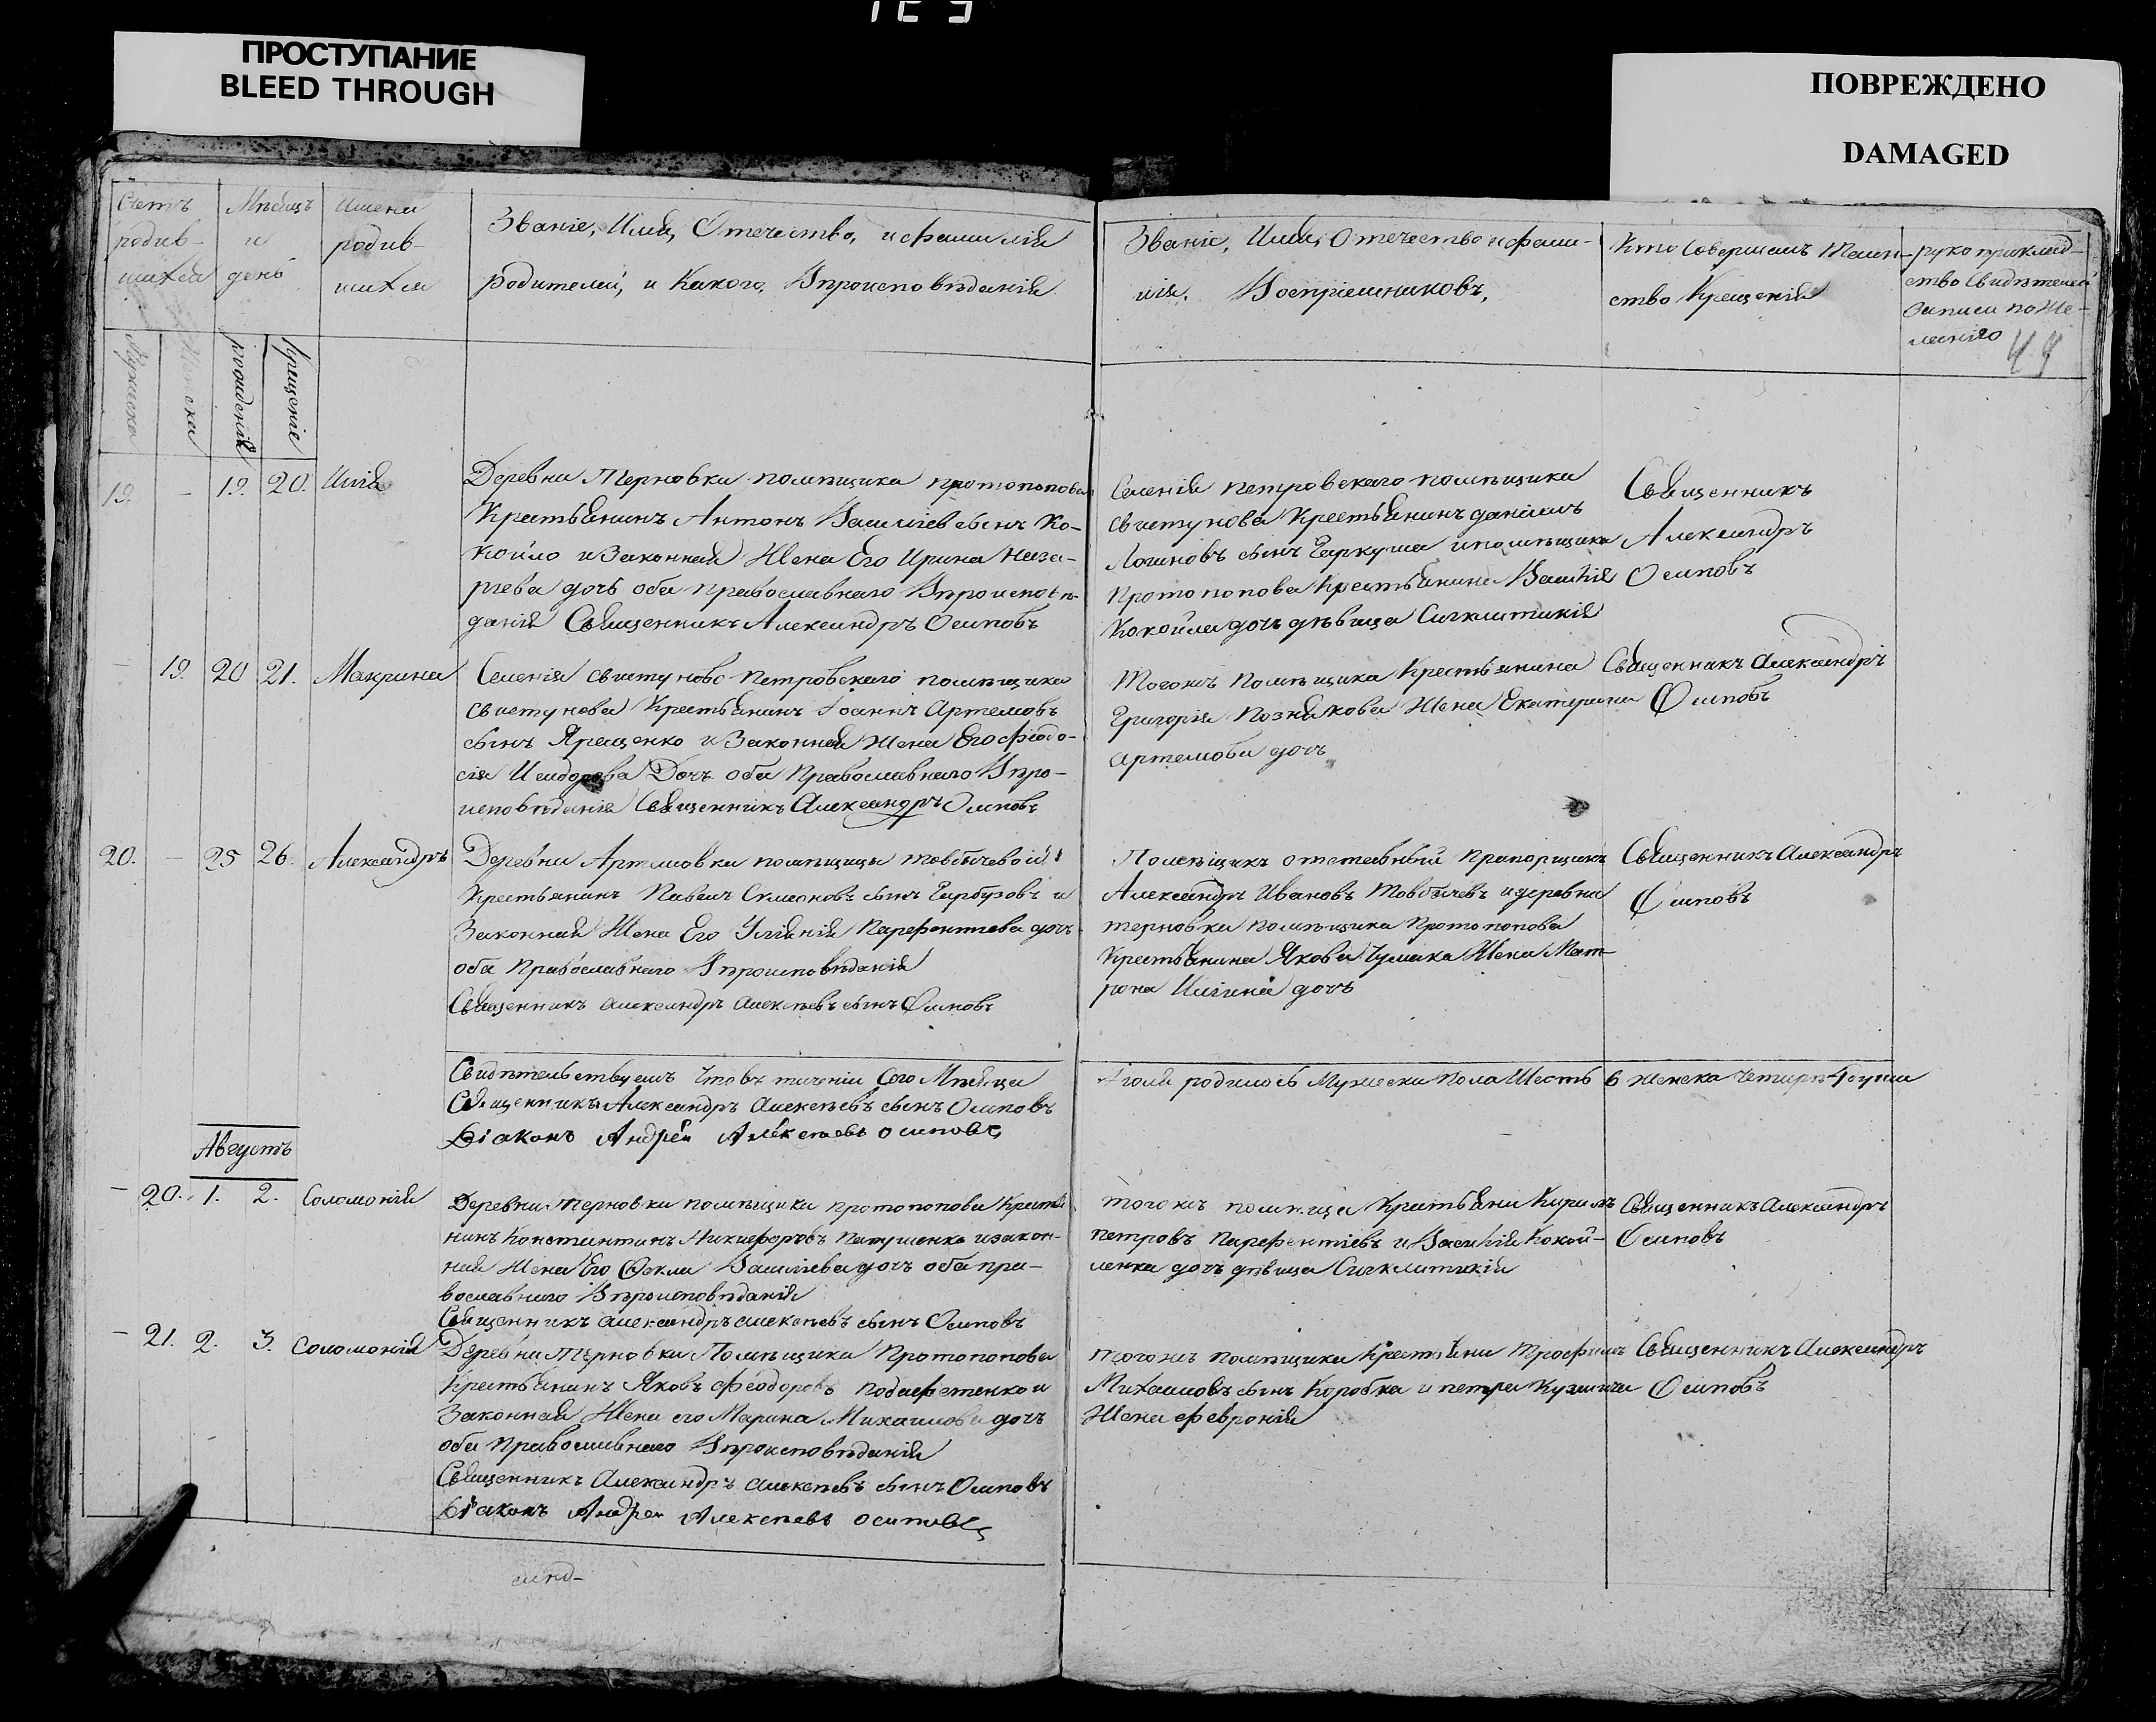 ПРОСТУПАНИЕ
BLEED THROUGH
ПОВРЕЖДЕНО
DAMAGED
Счетъ родив- шихся
Мѣсяцъ и день
Имена родив- шихся
Званіе, Имя, Отечество, и фамилія
родителей, и Какого, Вѣроисповѣданія
Званіе, Имя, Отечество и фами-
лія, Воспріемниковъ,
Кто Совершалъ Таин-
ство Крещенія
рукоприклад-
ство Свидѣтелей
Записи по Же-
ланію
44
Мужеска
Женска
рожденія
Крещеніе
19. – 19. 20. Илія
Деревни Терновки помѣщика протопопова
Крестьянинъ Антонъ Василіевъ сынъ Ко-
койло и Законная Жена Его Ирина Наза-
рьева дочь оба православнаго Вѣроисповѣ-
данія Священникъ Александръ Осиповъ
Селенія петровскаго помѣщика
свистунова Крестьянинъ даніилъ
Логиновъ сынъ Гаркуша и помѣщика
Протопопова Крестьянина Василія
Кокойла дочь дѣвица Сигклитикія
Священникъ
Александръ
Осиповъ
– 19. 20 21. Макрина
Селенія свистуново петровскаго помѣщика
свистунова Крестьянинъ Іоаннъ Артемовъ
сынъ Ярещенко и Законная Жена Его феодо-
сія Исидорова Дочь оба Православнаго Вѣро-
исповѣданія Священникъ Александръ Осиповъ
Тогожъ Помѣщика Крестьянина
Григорія Познякова Жена Екатерина
Артемова дочь
Священникъ Александръ
Осиповъ
20. – 25 26. Александръ
Деревни Артемовки помѣщицы товбичевой
Крестьянинъ Павелъ Симеоновъ сынъ Гарбузовъ и
Законная Жена Его Уліянія Парфентіева дочь
оба Православнаго Вѣроисповѣданія
Священникъ Александръ Алексѣевъ сынъ Осиповъ
Помѣщикъ отставный Прапорщикъ
Александръ Ивановъ Товбичевъ и деревни
терновки помѣщика Протопопова
Крестьянина Якова Чумака Жена Мат-
рона Иліина дочь
Священникъ Александръ
Осиповъ
Свидѣтельствуемъ Что въ теченіи Сего Мѣсяца
Священникъ Александръ Алексѣевъ сынъ Осиповъ
Діаконъ Андрей Алексѣевъ Осиповъ
Іюля родилось Мужеска Пола Шесть 6 Женска Четыре 4 души
Августъ
– 20. 1. 2. Соломонія
Деревни терновки помѣщика протопопова Крестья
нинъ Константинъ Никифоровъ Петушенко и закон-
ная Жена Его Фекла Василіева дочь оба пра-
вославнаго Вѣроисповѣданія
Священникъ Александръ Алексѣевъ сынъ Осиповъ
тогожъ помѣщ Крестьяни Кирилъ
петровъ Парфентіевъ и Василія Кокой-
ленка дочь дѣвица Сигклитикія
Священникъ Александръ
Осиповъ
– 21. 2. 3. Соломонія
Деревни Терновки Помѣщика Протопопова
Крестьянинъ Яковъ феодоровъ и
Законная Жена его Марина Михаилова дочь
оба Православнаго Вѣроисповѣданія
Священникъ Александръ Алексѣевъ сынъ Осиповъ
Діаконъ Андрей Алексѣевъ Осиповъ
тогожъ помѣщика Крестьяни Трофимъ
Михаиловъ сынъ Коробка и петра Кузмича
Жена феvронія
Священникъ Александръ
Осиповъ